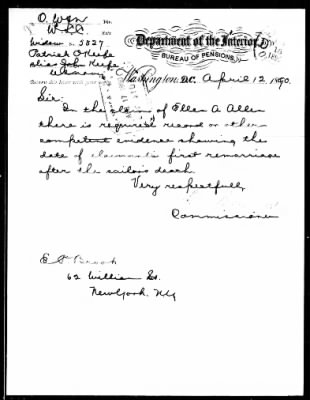 O. W & N Div.
Widow c. 5827
Patrick O'Keefe
alias John Keefe
U.S. Navy
Department of the Interior,
BUREAU OF PENSIONS,
Washington, D.C. April 12, 1890.
Sir:
In the claim of Ellen A Allen
there is required record or other
competent evidence showing the
date of claimant's first remarriage
after the sailor's death.
Very respectfully,
Commissioner
62 William St.
New York. N.Y.